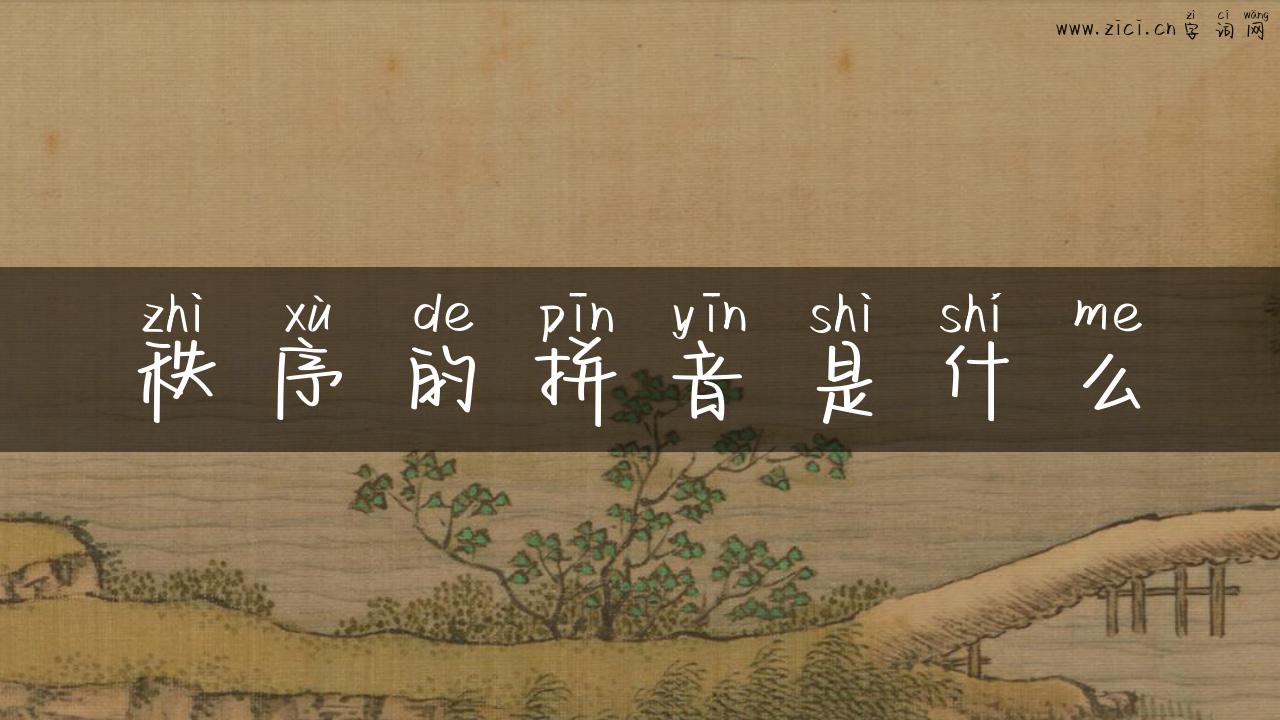 zì cí wǎng
www.zici.cn 字词网
zhì xù de pīn yīn shì shí me
秩序的拼音是什么